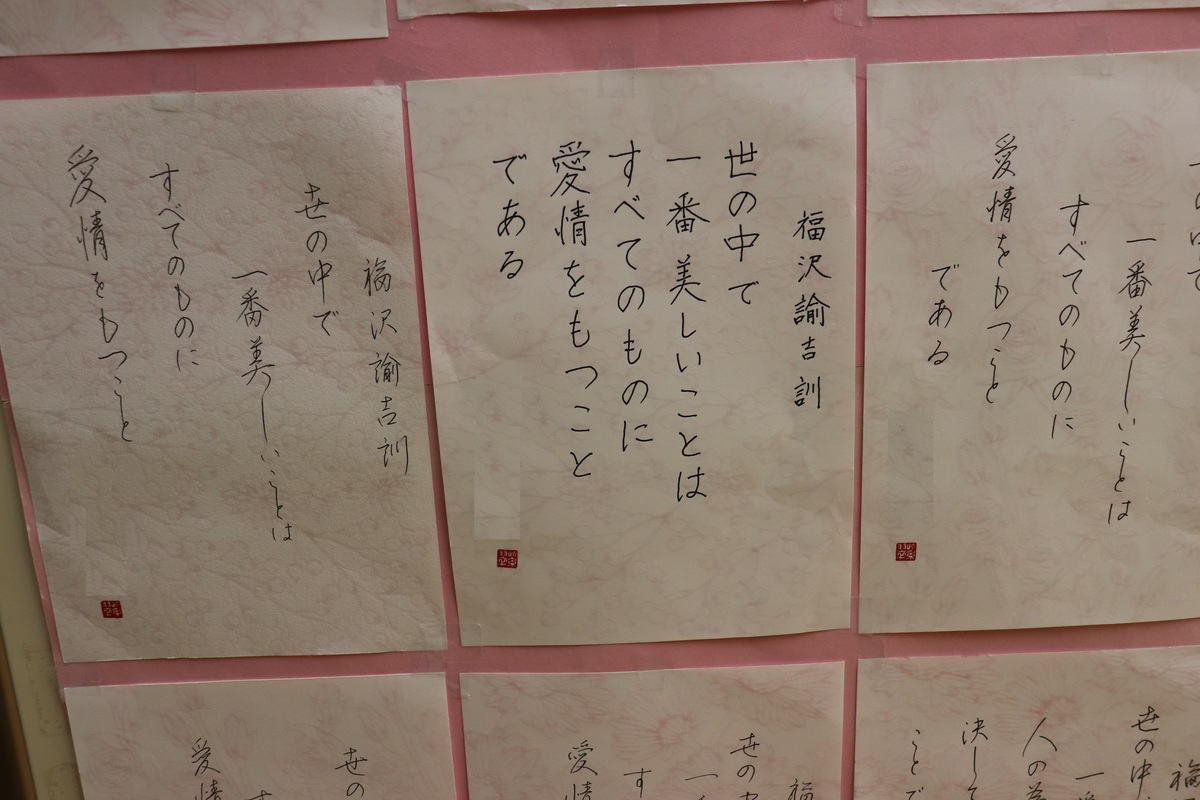 福沢諭吉訓
世の中で
一番美しいことは
すべてのものに
愛情をもつこと
である
福沢諭吉訓
世の中で
一番美しいことは
すべてのものに
愛情をもつこと
の中で
一番美しいことは
すべてのものに
愛情をもつこと
である
世の
す
愛情
福
世の
一
す
愛情
福
世の中
一
人の
決して
ことで